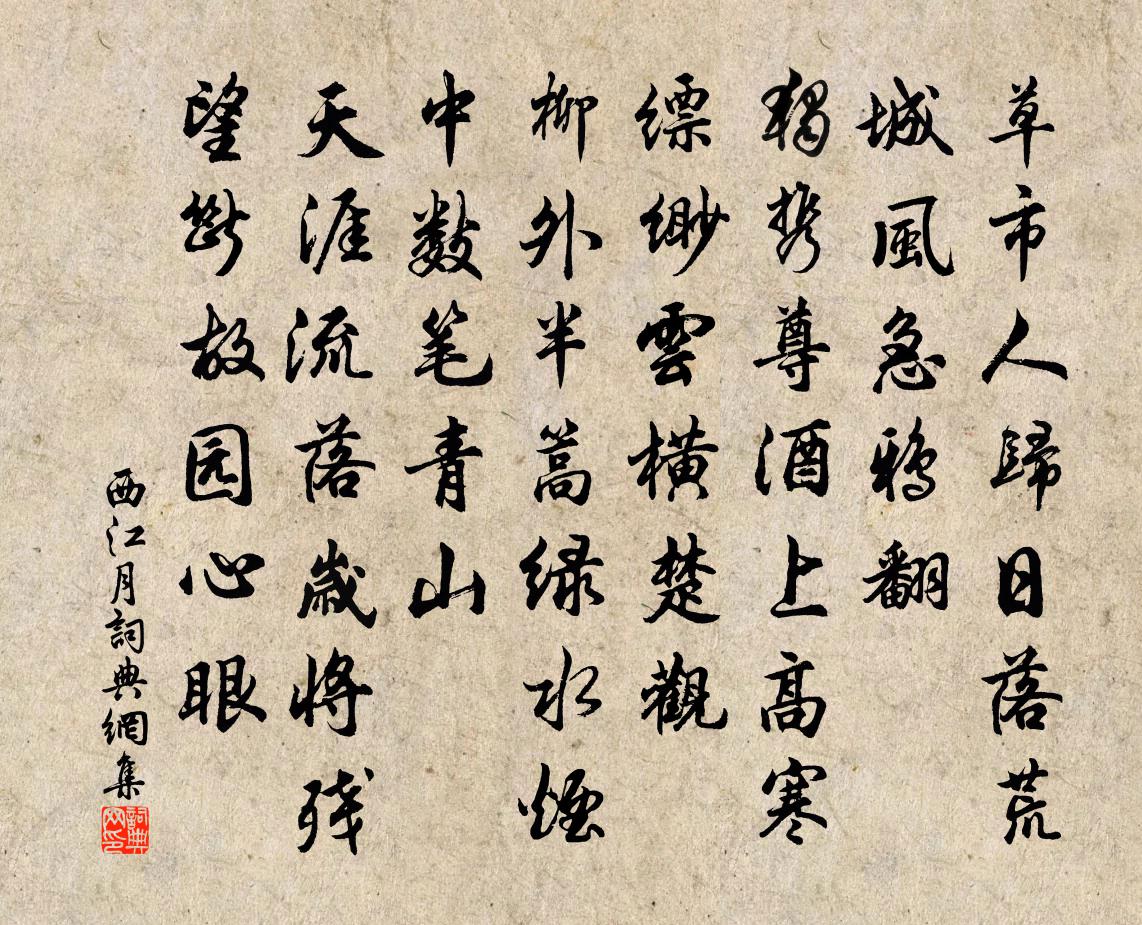 草市人歸日落荒
城風急鴉翻
獨携尊酒上高寒
縹緲雲橫楚觀
柳外半篙绿水煙
中數笔青山
天涯流落歲將残
望斷故园心眼
西江月詞典網集
詞典網印